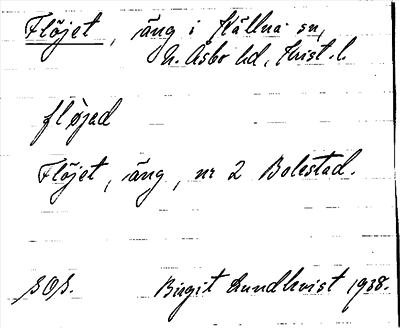 Flöjet, äng i Källna sn,
N. Åsbo hd, Krist. l.
fløjad
Flöjet, äng, nr 2 Bolestad.
SOS. Birgit Lundkvist 1938.